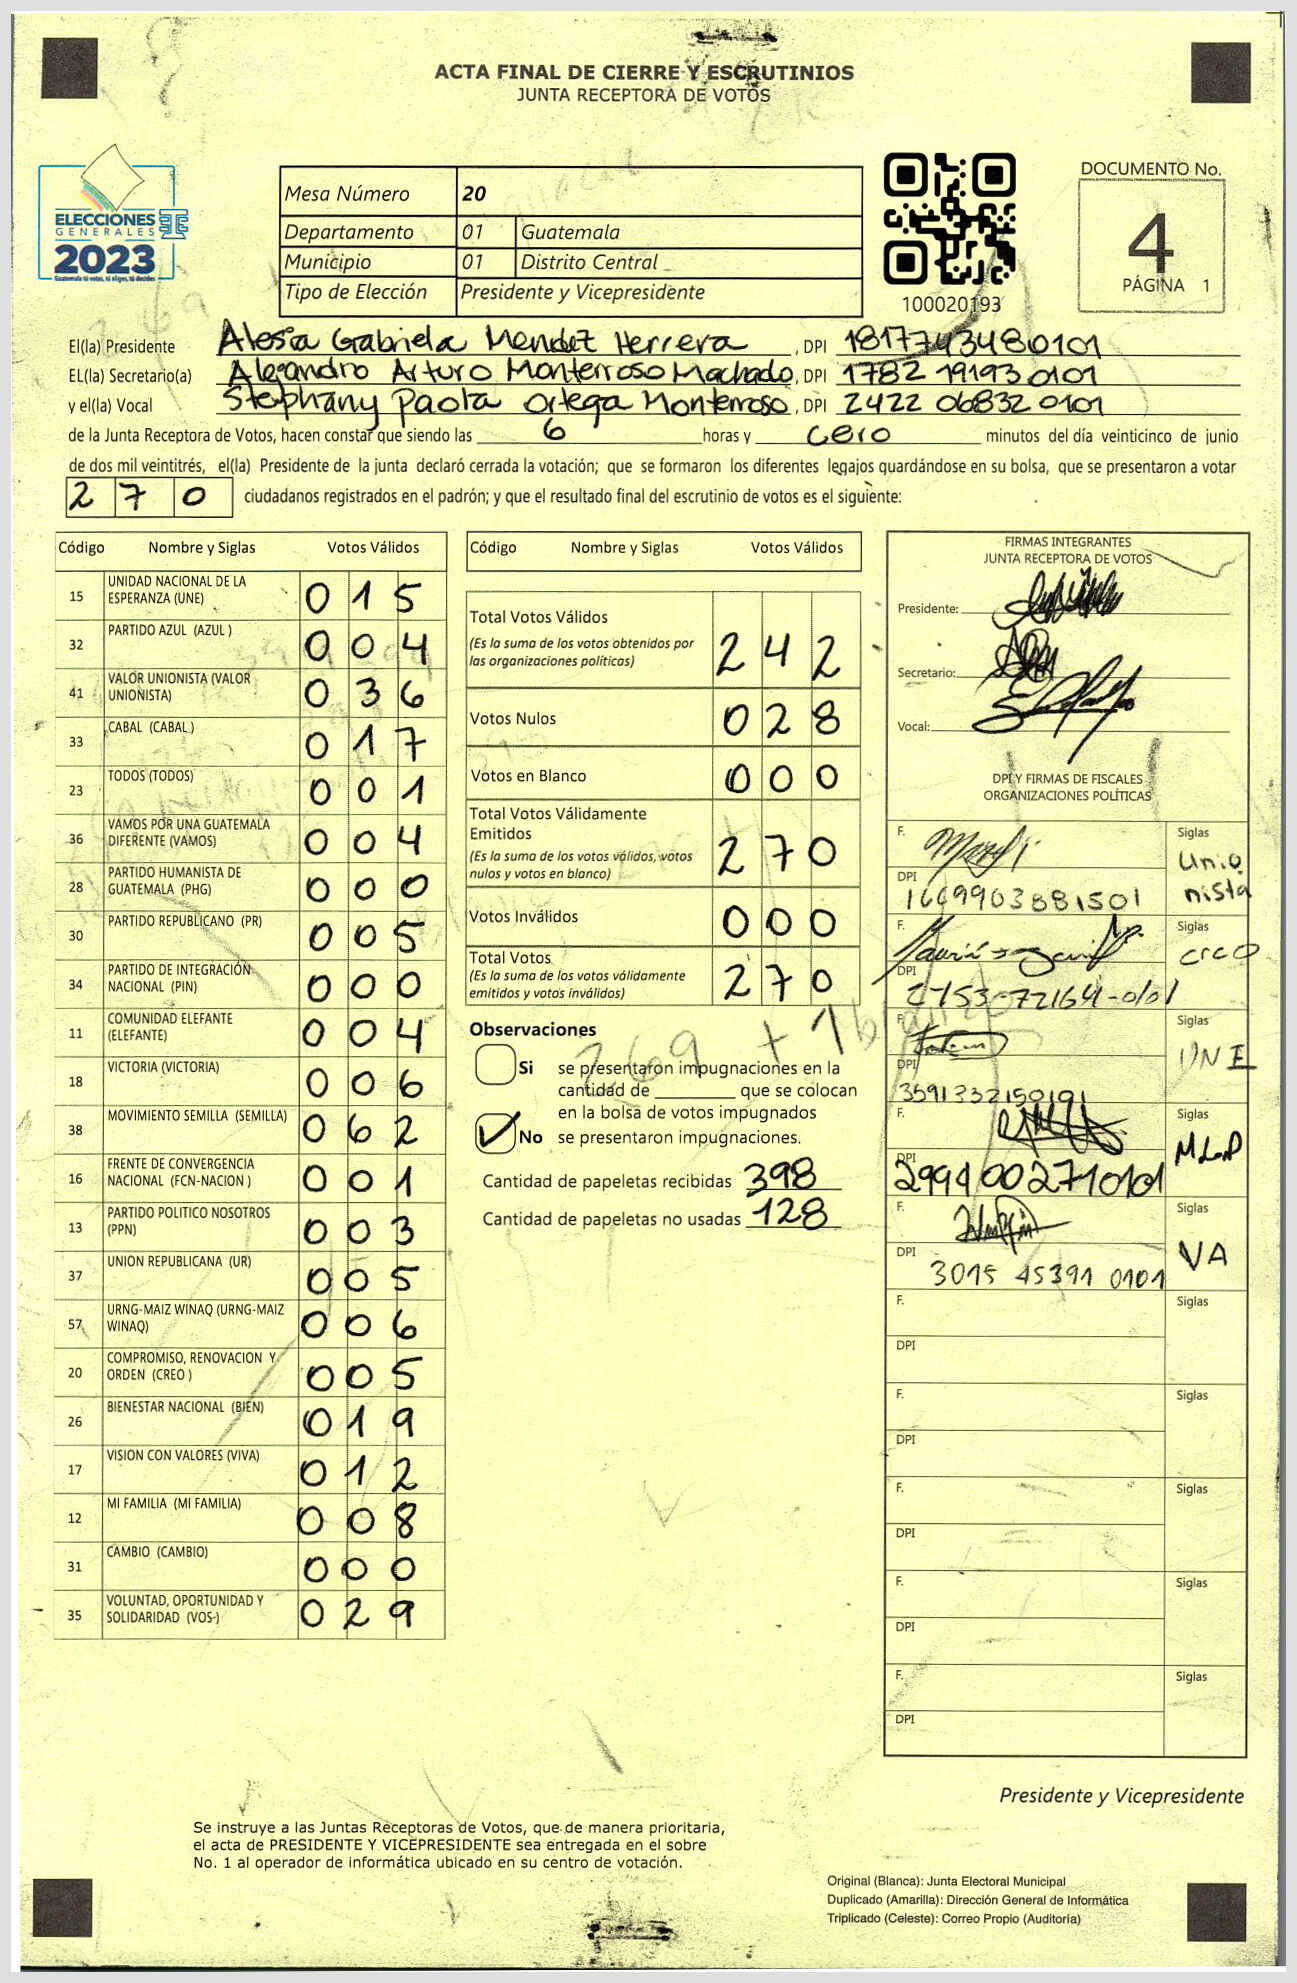 ACTA FINAL DE CIERRE Y ESCRUTINIOS
JUNTA RECEPTORA DE VOTOS
ELECCIONES
GENERALES
2023
Guatemala tú votas, tú eliges, tú decides
Mesa Número 20
Departamento 01 Guatemala
Municipio 01 Distrito Central
Tipo de Elección Presidente y Vicepresidente
100020193
DOCUMENTO No.
4
PÁGINA 1
El(la) Presidente Alessa Gabriela Mendez Herrera, DPI 1817743480101
EL(la) Secretario(a) Alejandro Arturo Monterroso Machado, DPI 1782 19193 0101
y el(la) Vocal Stephany Paola Ortega Monterroso, DPI 2422 06832 0101
de la Junta Receptora de Votos, hacen constar que siendo las 6 horas y cero minutos del día veinticinco de junio
de dos mil veintitrés, el(la) Presidente de la junta declaró cerrada la votación; que se formaron los diferentes legajos quardándose en su bolsa, que se presentaron a votar
270 ciudadanos registrados en el padrón; y que el resultado final del escrutinio de votos es el siguiente:
Código Nombre y Siglas Votos Válidos
15 UNIDAD NACIONAL DE LA ESPERANZA (UNE) 015
32 PARTIDO AZUL (AZUL ) 004
41 VALOR UNIONISTA (VALOR UNIONISTA) 036
33 CABAL (CABAL ) 017
23 TODOS (TODOS) 001
36 VAMOS POR UNA GUATEMALA DIFERENTE (VAMOS) 004
28 PARTIDO HUMANISTA DE GUATEMALA (PHG) 000
30 PARTIDO REPUBLICANO (PR) 005
34 PARTIDO DE INTEGRACIÓN NACIONAL (PIN) 000
11 COMUNIDAD ELEFANTE (ELEFANTE) 004
18 VICTORIA (VICTORIA) 006
38 MOVIMIENTO SEMILLA (SEMILLA) 062
16 FRENTE DE CONVERGENCIA NACIONAL (FCN-NACION ) 001
13 PARTIDO POLITICO NOSOTROS (PPN) 003
37 UNION REPUBLICANA (UR) 005
57 URNG-MAIZ WINAQ (URNG-MAIZ WINAQ) 006
20 COMPROMISO, RENOVACION Y ORDEN (CREO ) 005
26 BIENESTAR NACIONAL (BIEN) 019
17 VISION CON VALORES (VIVA) 012
12 MI FAMILIA (MI FAMILIA) 008
31 CAMBIO (CAMBIO) 000
35 VOLUNTAD, OPORTUNIDAD Y SOLIDARIDAD (VOS-) 029
Código Nombre y Siglas Votos Válidos
Total Votos Válidos 242
(Es la suma de los votos obtenidos por
las organizaciones políticas)
Votos Nulos 028
Votos en Blanco 000
Total Votos Válidamente
Emitidos 270
(Es la suma de los votos válidos, votos
nulos y votos en blanco)
Votos Inválidos 000
Total Votos 270
(Es la suma de los votos válidamente
emitidos y votos inválidos)
Observaciones
269 + 1
Si se presentaron impugnaciones en la
cantidad de ________ que se colocan
en la bolsa de votos impugnados
No se presentaron impugnaciones.
Cantidad de papeletas recibidas 398
Cantidad de papeletas no usadas 128
FIRMAS INTEGRANTES
JUNTA RECEPTORA DE VOTOS
Presidente:
Secretario:
Vocal:
DPI Y FIRMAS DE FISCALES
ORGANIZACIONES POLÍTICAS
F. Siglas
Unio
nista
DPI 1649903881501
F. Siglas
creo
DPI
F. Siglas
UNE
DPI 3591332150191
F. Siglas
MLP
DPI 2994002710101
F. Siglas
VA
DPI 3015 45391 0101
F. Siglas
DPI
F. Siglas
DPI
F. Siglas
DPI
F. Siglas
DPI
F. Siglas
DPI
Presidente y Vicepresidente
Se instruye a las Juntas Receptoras de Votos, que de manera prioritaria,
el acta de PRESIDENTE Y VICEPRESIDENTE sea entregada en el sobre
No. 1 al operador de informática ubicado en su centro de votación.
Original (Blanca): Junta Electoral Municipal
Duplicado (Amarilla): Dirección General de Informática
Triplicado (Celeste): Correo Propio (Auditoría)